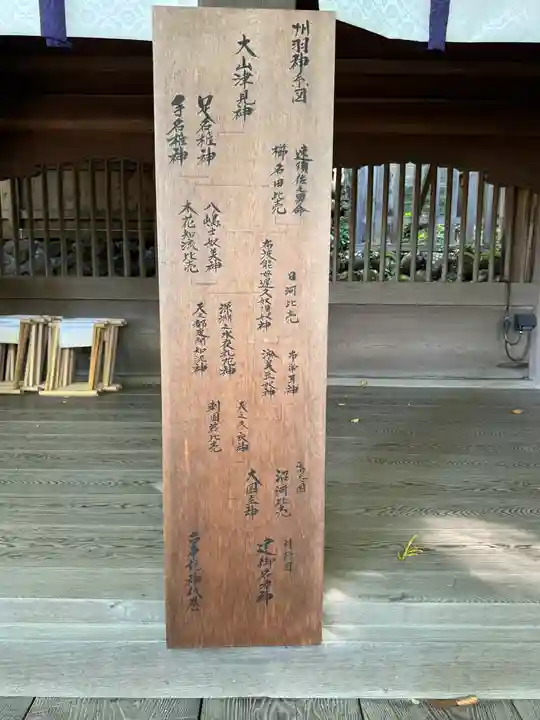 州羽神系図
大山津見神
足名椎神
手名椎神
速須佐之男命
櫛名田比売
八嶋士奴美神
木花知流比売
日河比売
布波能母遅久奴須奴神
深淵之水夜礼花神
天之都度閇知泥神
淤美豆奴神
天之冬衣神
刺国若比売
沼河比売
大国主神
建御名方神